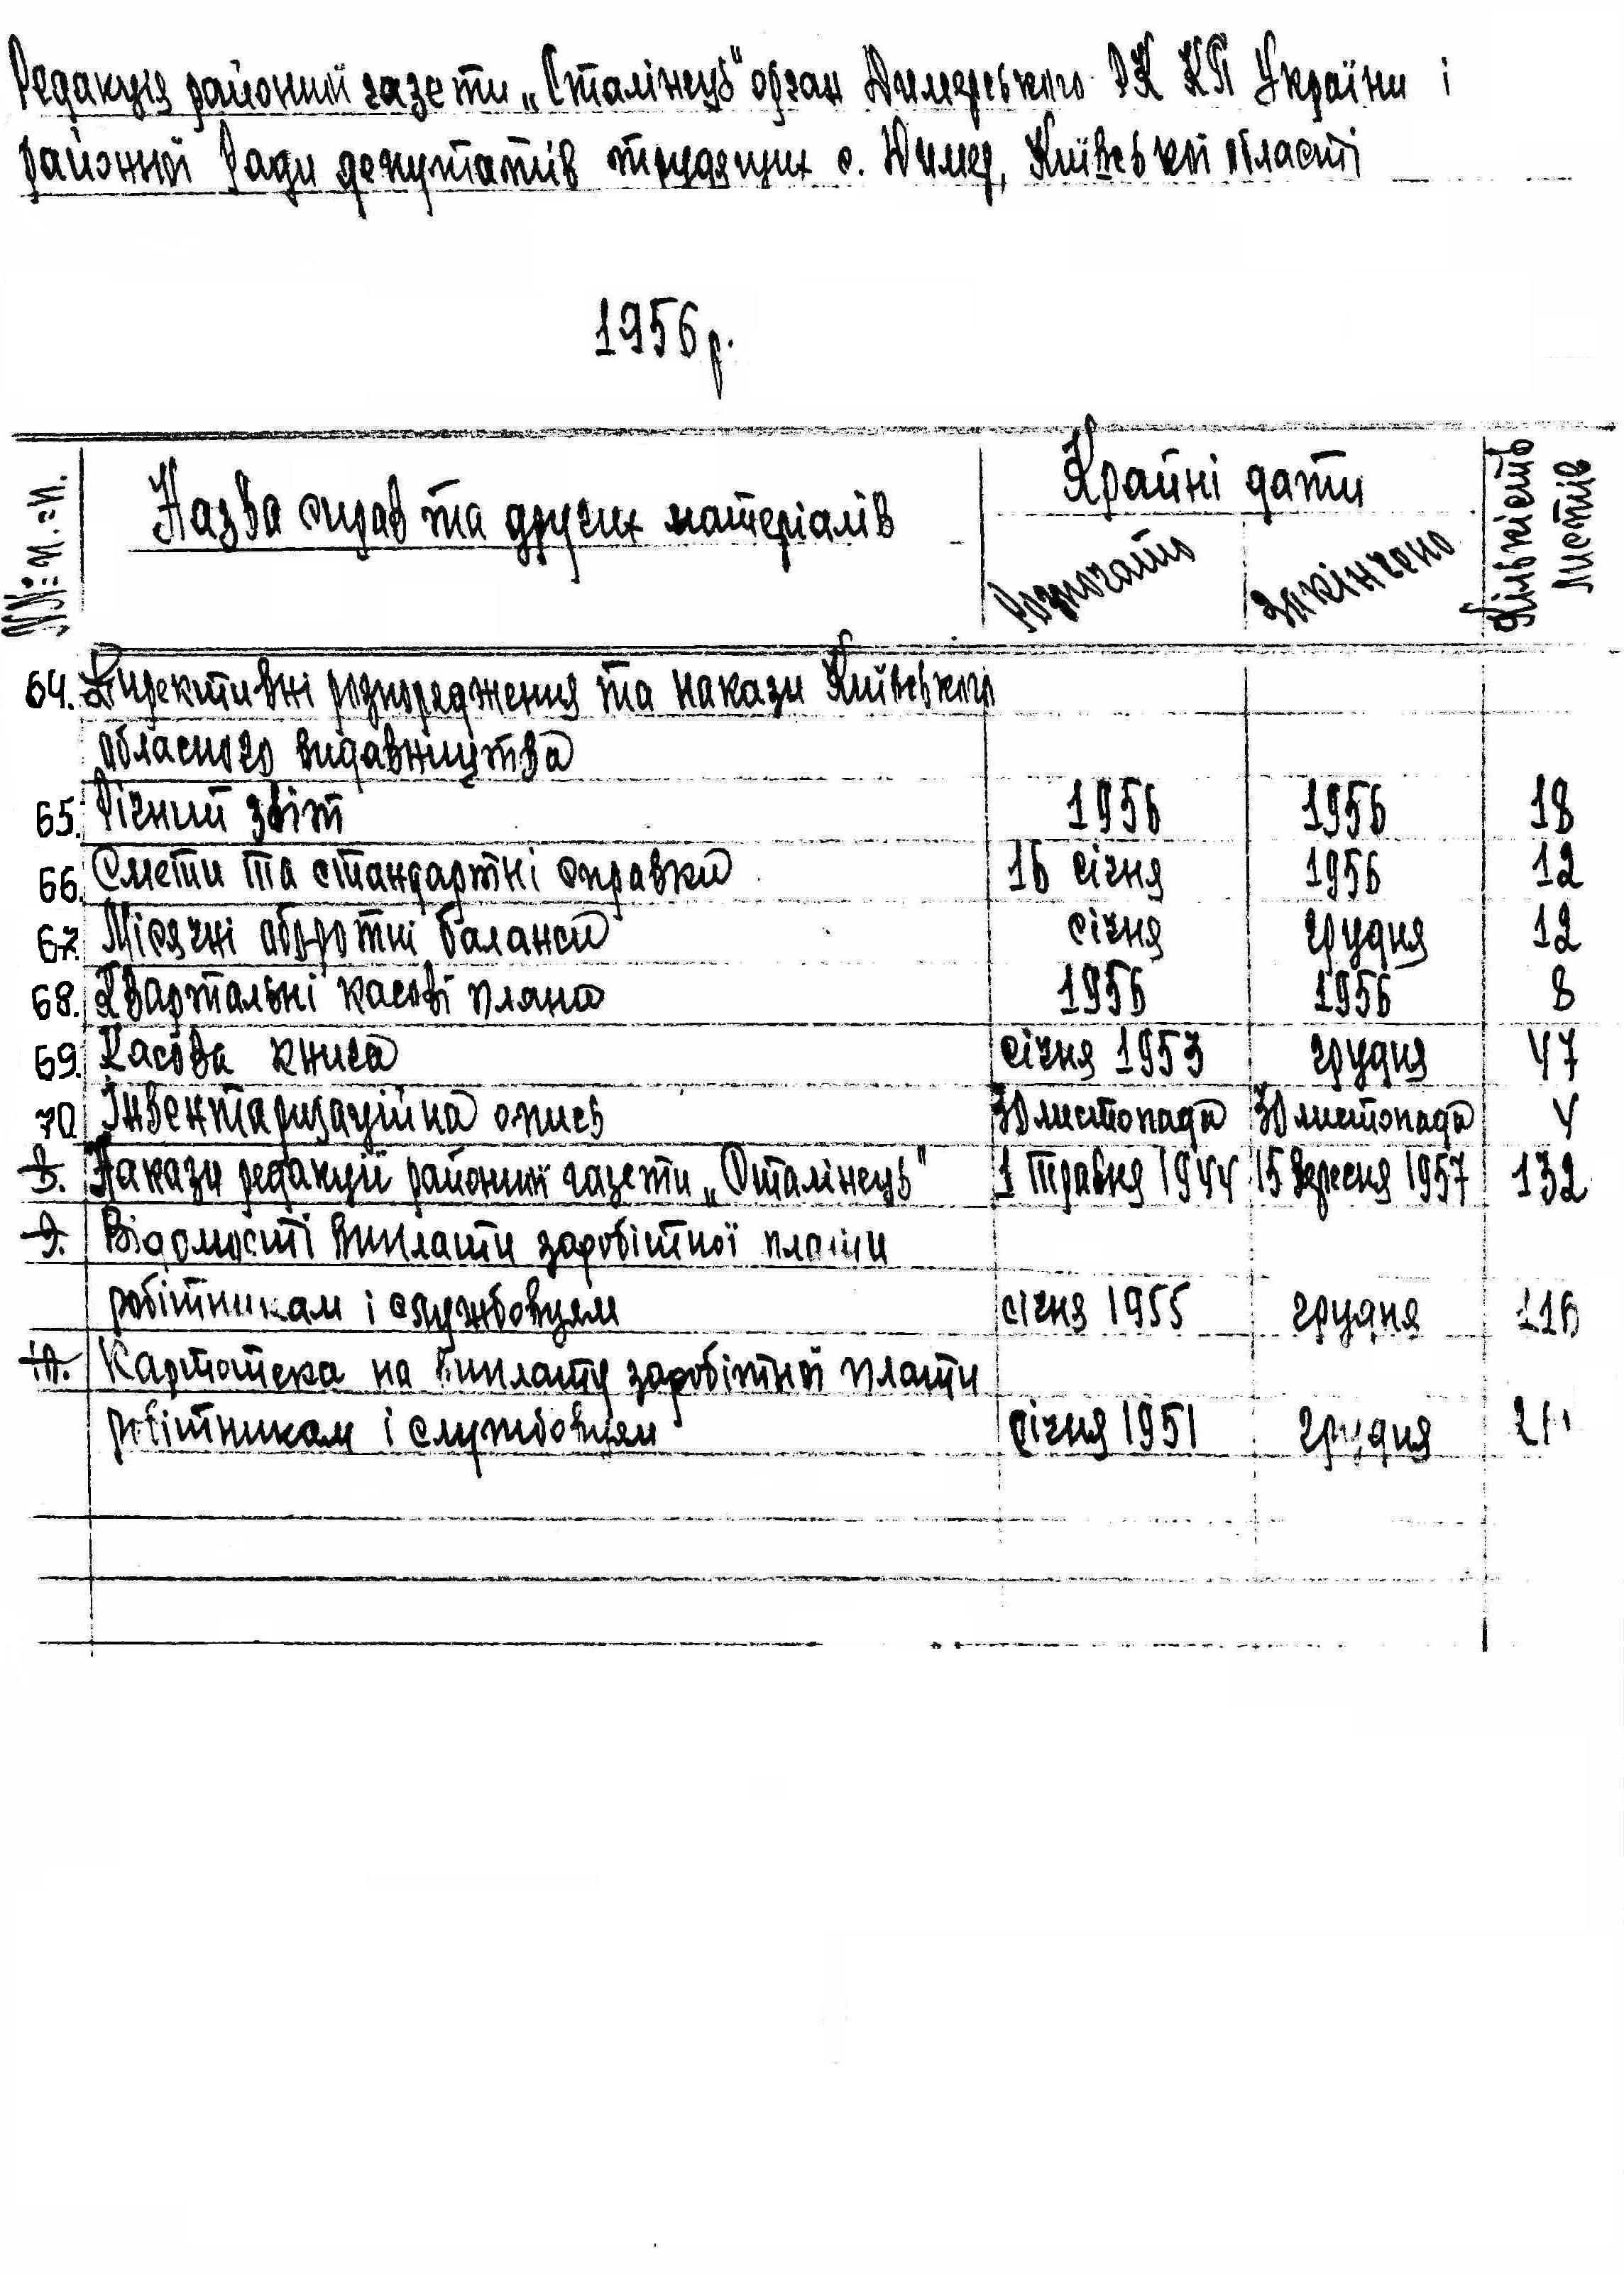 Редакція районний газети „Сталінець" орган Димерського РК КП України і
районний Ради депутатів трудящих с. Димер, Київської області
1956 р.
NN: п.=п. Назва справ та других матеріалів Крайні дати Кількість листів
Розпочато Закінчено
64. Директивні розпорядження та накази Київського
обласного видавництва
65. Річний звіт 1956 1956 18
66. Смети та стандартні справки 16 січня 1956 12
67. Місячні оборотні баланси січня грудня 12
68. Квартальні касові плана 1956 1956 8
69. Касова книга січня 1953 грудня 47
70. Інвентаризаційна опись 30 листопада 30 листопада 4
8. Накази редакції районний газети „Сталінець" 1 травня 1944 15 вересня 1957 132
9. Відомості виплати заробітної плати
робітникам і службовцям січня 1955 грудня 116
10. Картотека на виплату заробітной плати
робітникам і службовцям січня 1951 грудня